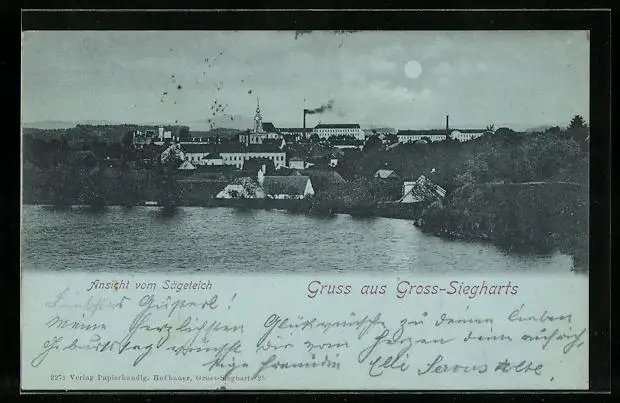 Ansicht vom Sägeteich
Gruss aus Gross-Siegharts
Liebstes Gusterl!
Meine herzlichsten Glückwünsche zu deinem lieben
Geburtstag wünscht dir vom ganzen Herzen deine aufrich-
tige Freundin Elli
2273 Verlag Papierhandlg. Hofbauer, Gross-Siegharts 25